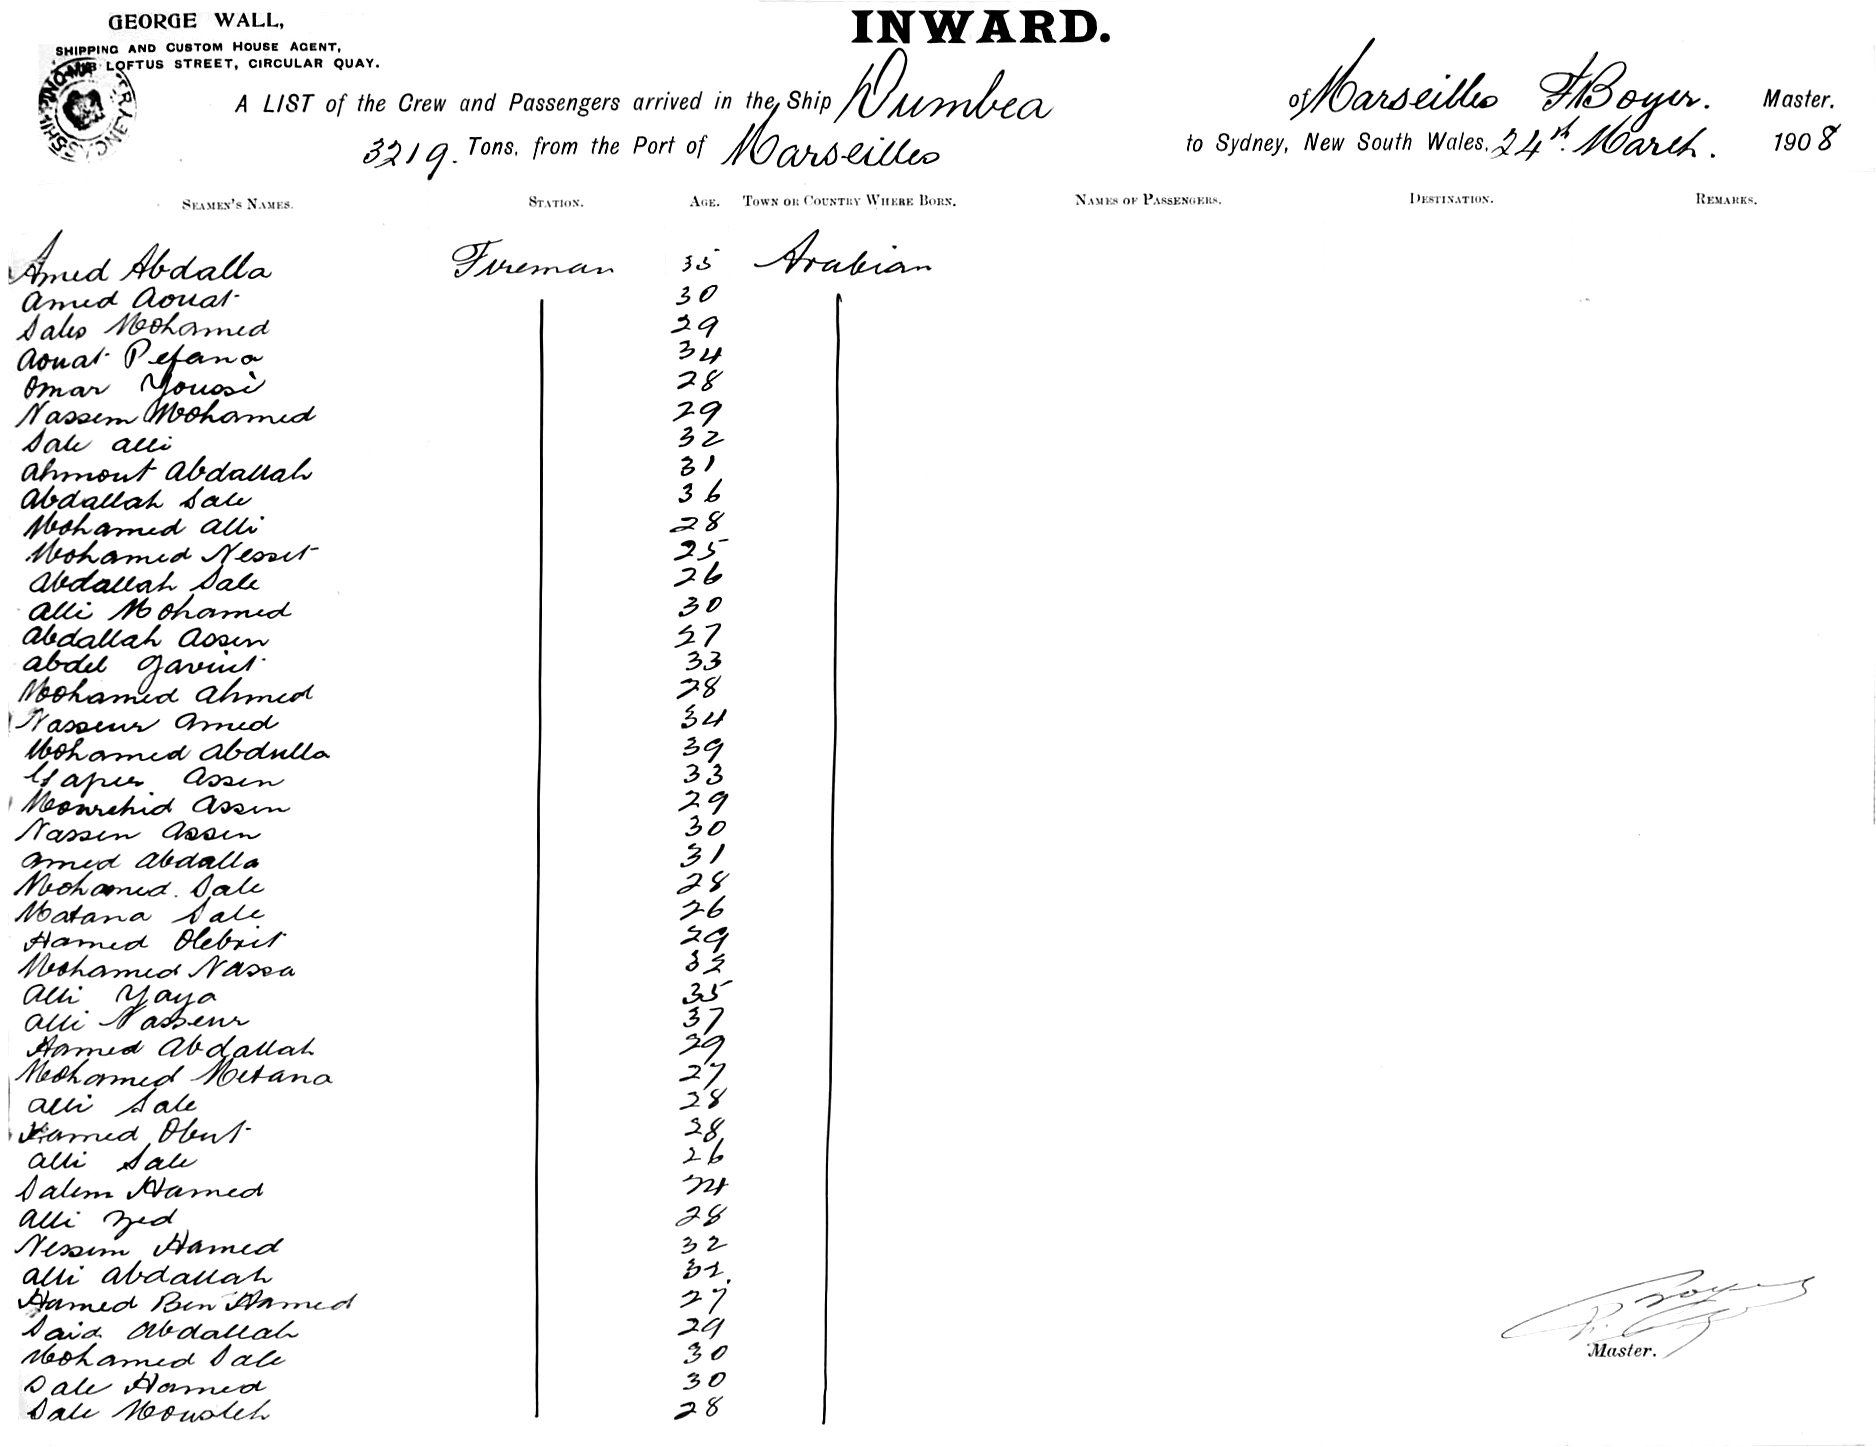 GEORGE WALL,
SHIPPING AND CUSTOM HOUSE AGENT,
LOFTUS STREET, CIRCULAR QUAY.
INWARD.
A LIST of the Crew and Passengers arrived in the Ship Dumbea of Marseilles F Boyer. Master.
3219. Tons, from the Port of Marseilles to Sydney, New South Wales, 24th March. 1908
SEAMEN'S NAMES. STATION. AGE. TOWN OR COUNTRY WHERE BORN. NAMES OF PASSENGERS. DESTINATION. REMARKS.
Amed Abdalla Fireman 35 Arabian
Amed Aouat 30
Sales Mohamed 29
Aouat Pefana 34
Omar Youssi 28
Nassem Mohamed 29
Sale Alli 32
Ahmout Abdallah 31
Abdallah Sale 36
Mohamed Alli 28
Mohamed Nesset 25
Abdallah Sale 26
Alli Mohamed 30
Abdallah Assen 27
Abdel 33
Mohamed Ahmed 28
Nasseur Amed 34
Mohamed Abdulla 39
Assen 33
Assen 29
Nassen Assen 30
Amed Abdalla 31
Mohamed. Sale 28
Matana Sale 26
Hamed Olebrit 29
Mohamed Nassa 32
Alli Yaya 35
Alli Nasseur 37
Hamed Abdallah 29
Mohamed Metana 27
Alli Sale 28
Hamed Obut 28
Alli Sale 26
Salem Hamed 24
Alli Zed 28
Nessim Hamed 32
Alli Abdallah 32.
Hamed Ben Hamed 27
Said Abdallah 29
Mohamed Sale 30
Sale Hamed 30
Sale Mousleh 28
Master.